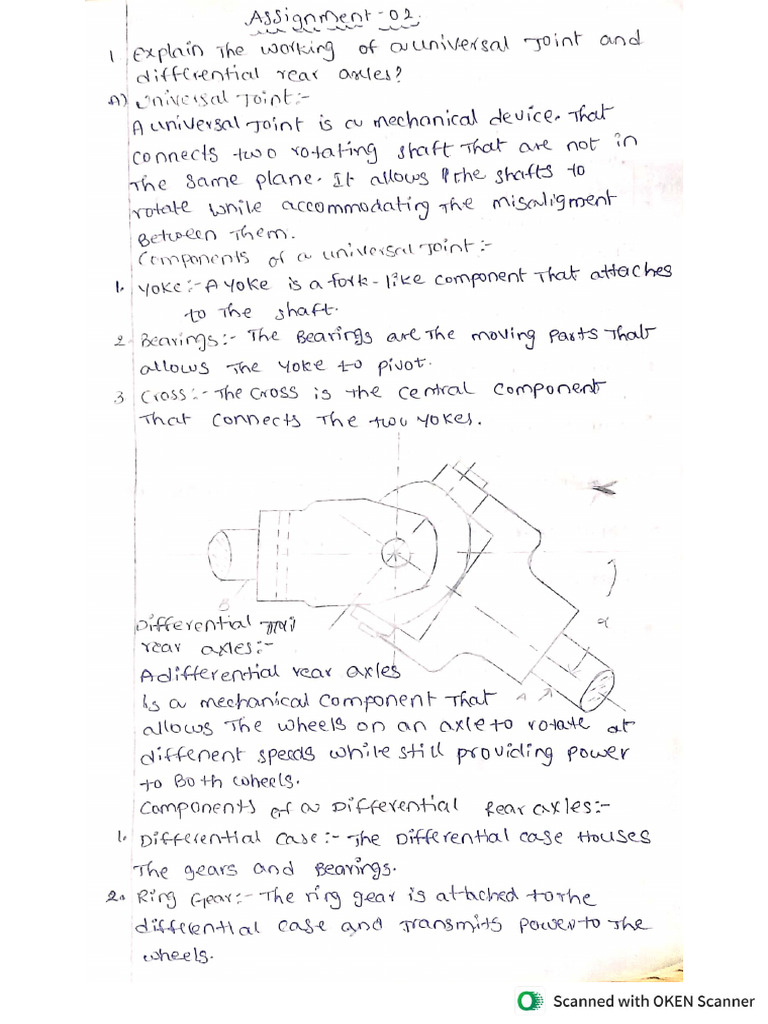 Assignment-02.
1 Explain The working of a universal Joint and
differential rear axles?
A) Universal Joint:-
A universal Joint is a mechanical device. That
connects two rotating shaft That are not in
The same plane. It allows the shafts to
rotate while accommodating The misaligment
Between Them.
Components of a universal Joint:-
1. Yoke:- A Yoke is a fork-like component That attaches
to The shaft.
2. Bearings:- The Bearings are The moving parts That
allows The Yoke to pivot.
3 Cross:- The Cross is the central component
That connects The two yokes.
B
Differential
rear axles:-
α
A differential rear axles
is a mechanical component That
A
allows The wheels on an axle to rotate at
different speeds while still providing power
to Both wheels.
Components of a Differential Rear axles:-
1. Differential Case:- The Differential case Houses
The gears and Bearings.
2. Ring Gear:- The ring gear is attached to the
differential case and Transmits power to The
wheels.
Scanned with OKEN Scanner